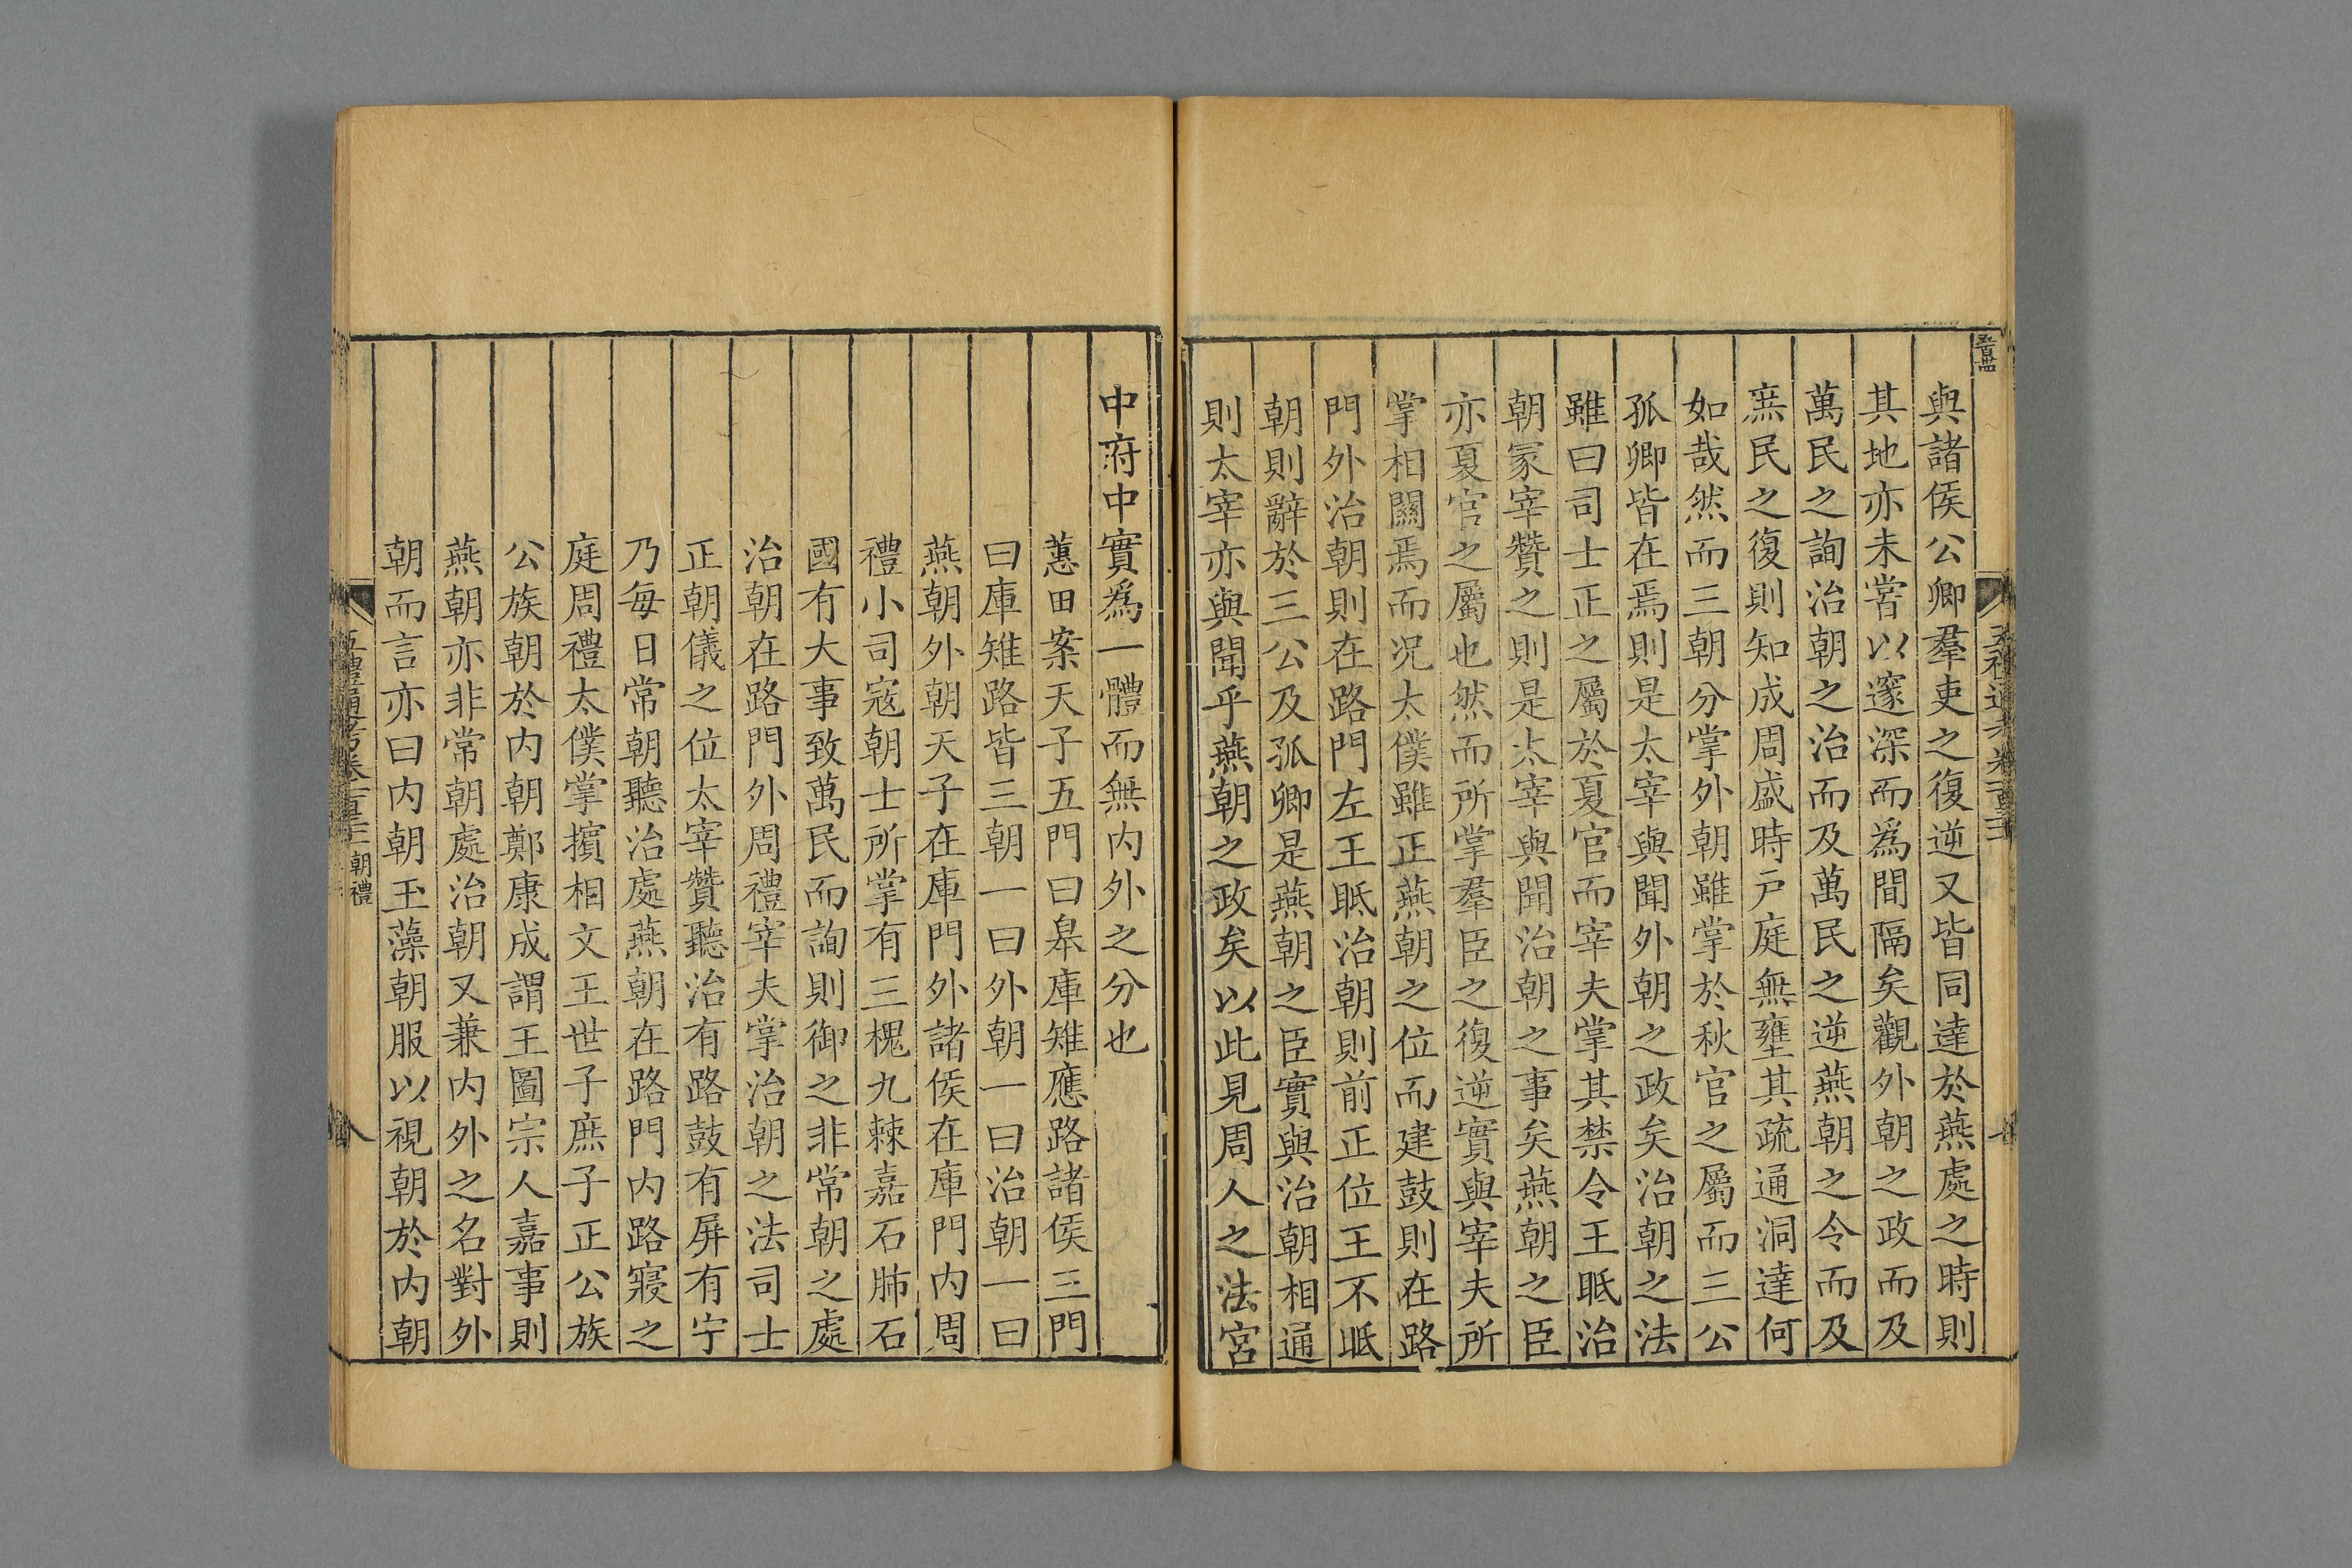 與諸侯公卿羣吏之復逆又皆同達於燕處之時則
其地亦未嘗以邃深而爲間隔矣觀外朝之政而及
萬民之詢治朝之治而及萬民之逆燕朝之令而及
庶民之復則知成周盛時戶庭無壅其疏通洞達何
如哉然而三朝分掌外朝雖掌於秋官之屬而三公
孤卿皆在焉則是太宰與聞外朝之政矣治朝之法
雖曰司士正之屬於夏官而宰夫掌其禁令王眡治
朝冢宰贊之則是太宰與聞治朝之事矣燕朝之臣
亦夏官之屬也然而所掌羣臣之復逆實與宰夫所
掌相關焉而况太僕雖正燕朝之位而建鼓則在路
門外治朝則在路門左王眡治朝則前正位王不眡
朝則辭於三公及孤卿是燕朝之臣實與治朝相通
則太宰亦與聞乎燕朝之政矣以此見周人之法宮
中府中實爲一體而無内外之分也
蕙田案天子五門曰臯庫雉應路諸侯三門
曰庫雉路皆三朝一曰外朝一曰治朝一曰
燕朝外朝天子在庫門外諸侯在庫門内周
禮小司寇朝士所掌有三槐九棘嘉石肺石
國有大事致萬民而詢則御之非常朝之處
治朝在路門外周禮宰夫掌治朝之法司士
正朝儀之位太宰贊聽治有路鼓有屏有宁
乃每日常朝聽治處燕朝在路門内路寢之
庭周禮太僕掌擯相文王世子庶子正公族
公族朝於内朝鄭康成謂王圖宗人嘉事則
燕朝亦非常朝處治朝又兼内外之名對外
朝而言亦曰内朝玉藻朝服以視朝於内朝
五禮通考卷一百三十二 朝禮
八